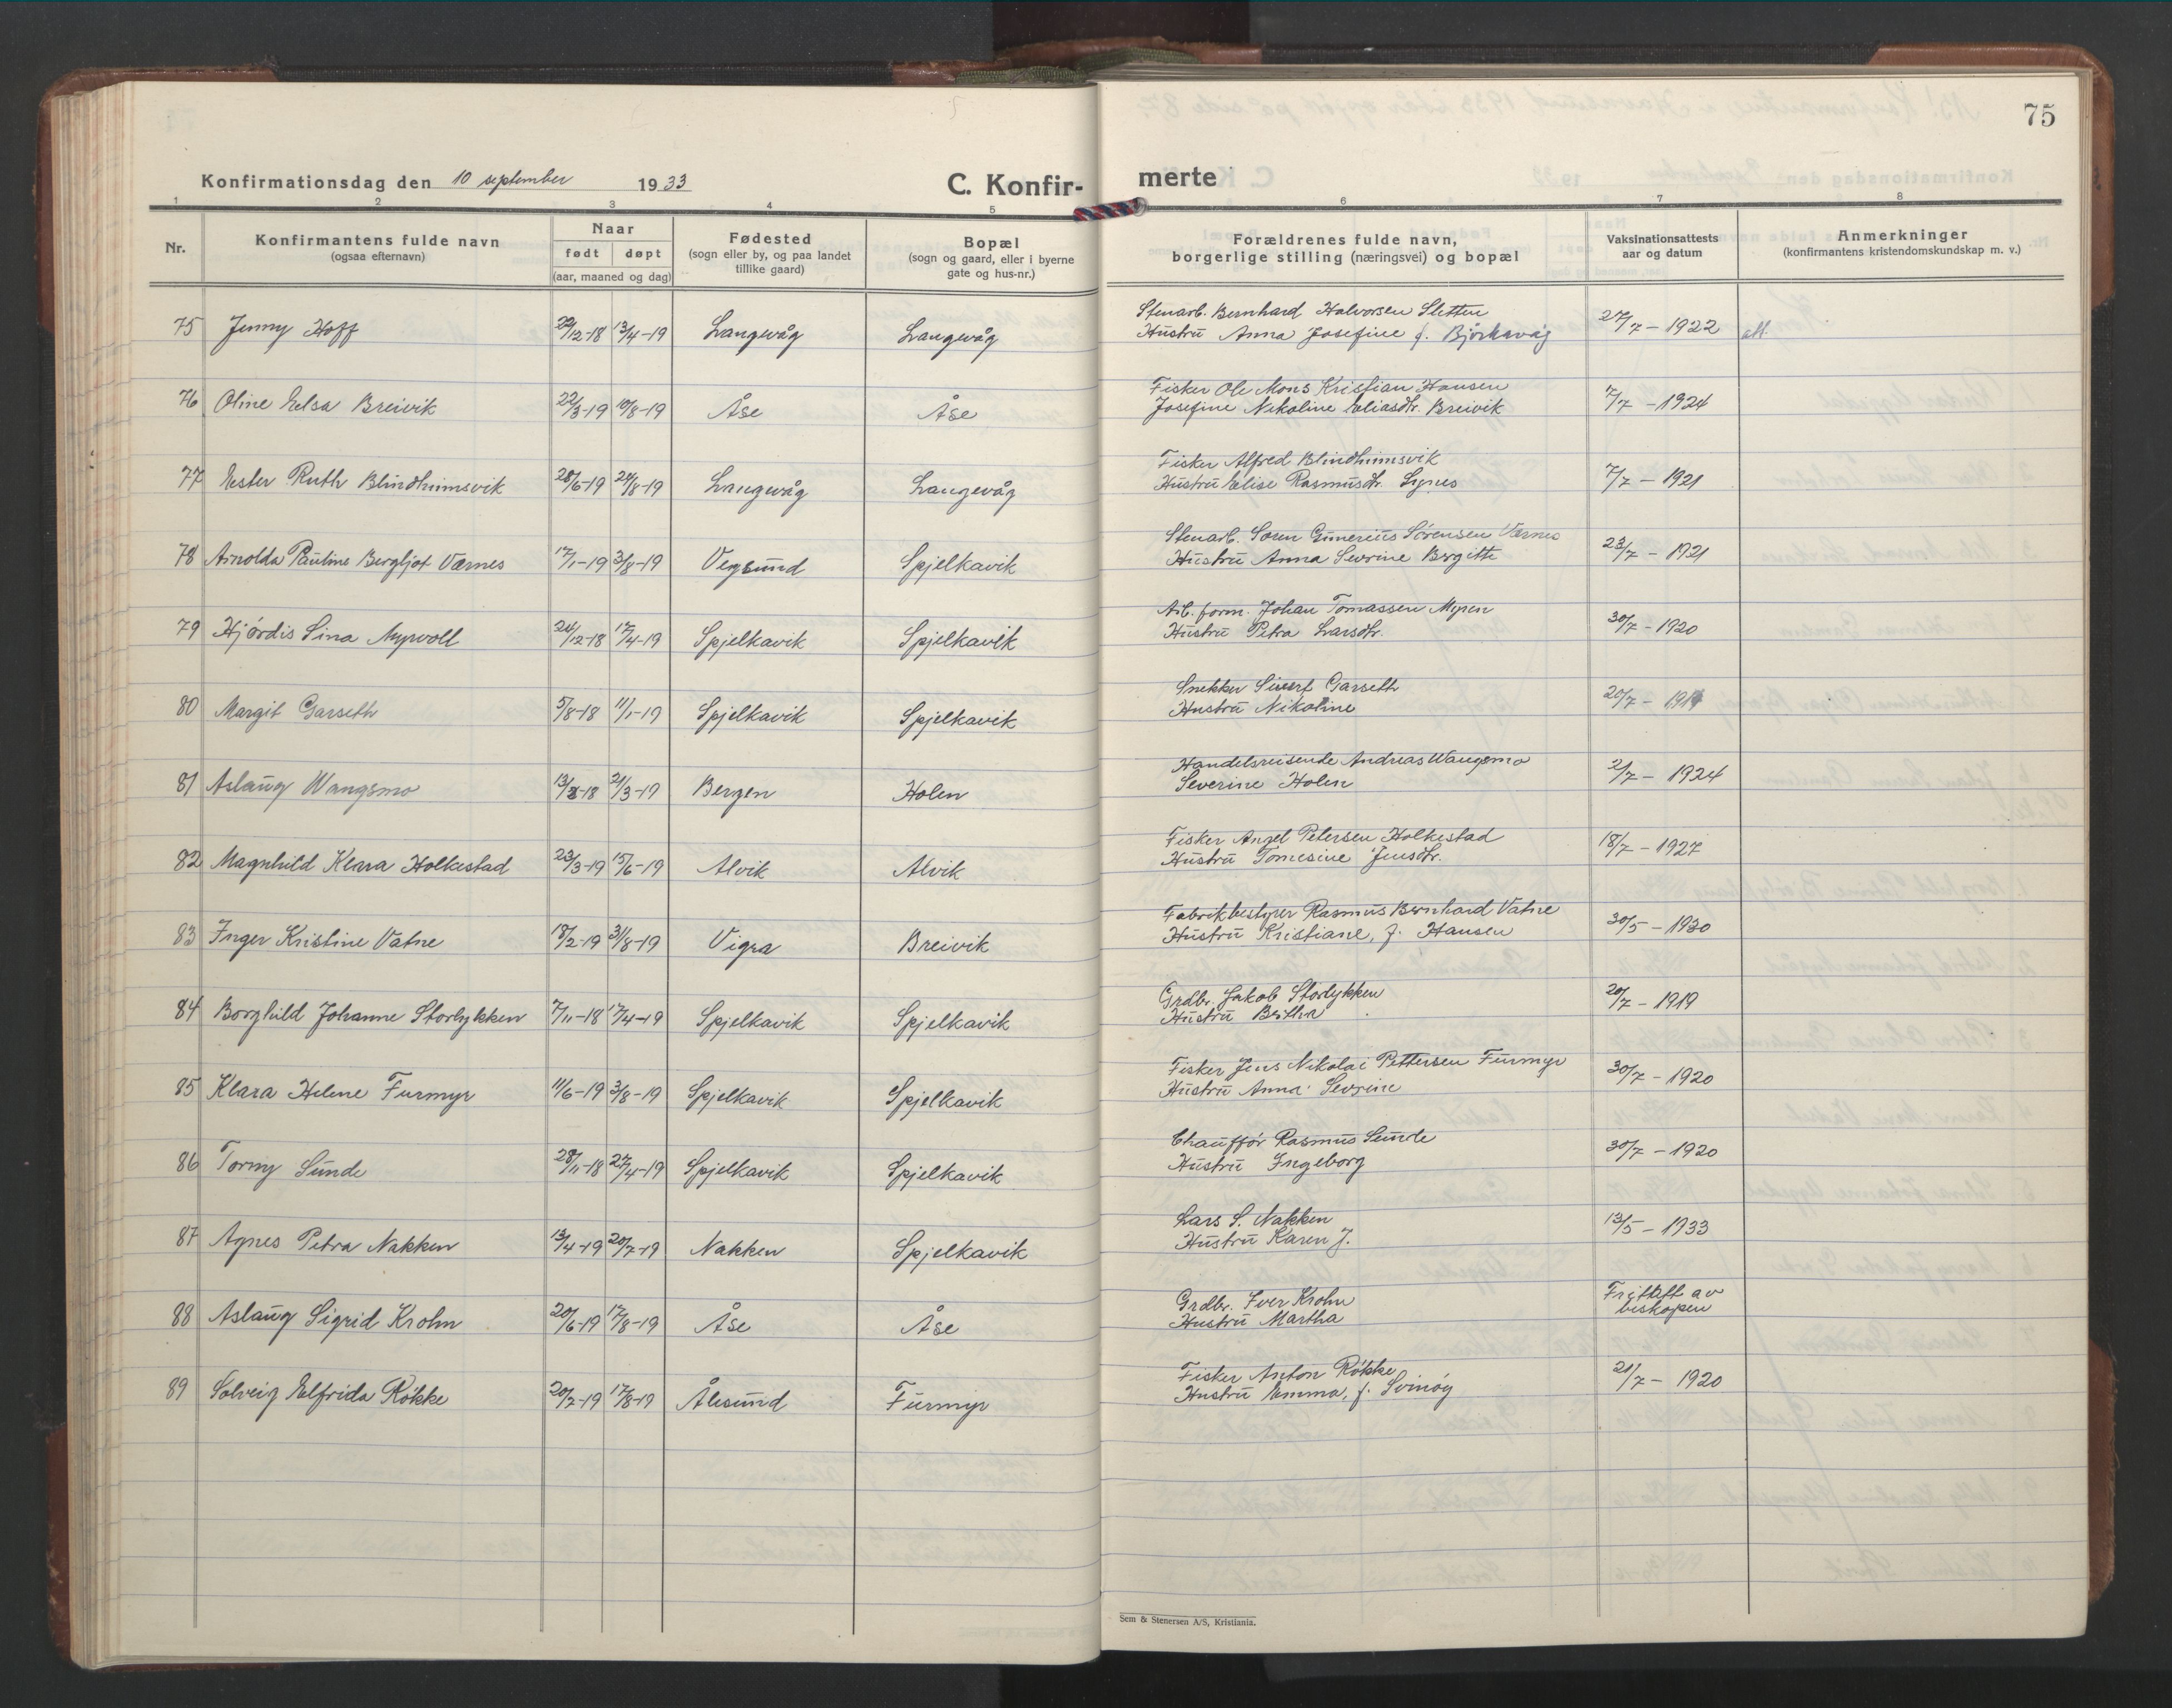 75
Konfirmationsdag den 10 september 1933 C. Konfir- merte
1 2 3 4 5 6 7 8
Nr. Konfirmantens fulde navn (ogsaa efternavn) Naar født døpt (aar, maaned og dag) Fødested (sogn eller by, og paa landet tillike gaard) Bopæl (sogn og gaard, eller i byerne gate og hus-nr.) Forældrenes fulde navn, borgerlige stilling (næringsvei) og bopæl Vaksinationsattests aar og datum Anmerkninger (konfirmantens kristendomskundskap m. v.)
75 Jenny Hoff 22/12-18 13/4-19 Langevåg Langevåg Stenarb. Bernhard Halvorsen Sletten 27/7-1922 att.
Hustru Anna Josefine f. Björkavåg
76 Oline Elsa Breivik 22/3-19 10/8-19 Åse Åse Fisker Ole Mons Kristian Hansen 7/7-1924
Josefine Nikoline Eliasdtr. Breivik
77 Ester Ruth Blindheimsvik 28/6-19 24/8-19 Langevåg Langevåg Fisker Alfred Blindheimsvik 7/7-1921
Hustru Elise Rasmusdtr. Signes
78 Arnolda Pauline Bergljot Værnes 17/1-19 3/8-19 Vegsund Spjelkavik Stenarb. Søren Gunerius Sörensen Værnes 23/7-1921
Hustru Anna Sevrine Bergitte
79 Hjördis Sina Myrvoll 24/12-18 17/4-19 Spjelkavik Spjelkavik Arb. form. Johan Tomassen Myren 30/7-1920
Hustru Petra Larsdtr.
80 Margit Garseth 5/8-18 11/1-19 Spjelkavik Spjelkavik Snekker Sivert Garseth 20/7-1919
Hustru Nikoline
81 Aslaug Wangsmo 13/8-18 21/3-19 Bergen Holen Handelsreisende Andreas Wangsmo 2/7-1924
Severine Holen
82 Magnhild Klara Holkestad 23/3-19 15/6-19 Alvik Alvik Fisker Angel Petersen Holkestad 18/7-1927
Hustru Tomesine Jensdtr.
83 Inger Kristine Vatne 18/2-19 31/8-19 Vigra Breivik Fabrikbestyrer Rasmus Bernhard Vatne 30/5-1930
Hustru Kristiane, f. Hansen
84 Borghild Johanne Storlykken 7/11-18 17/4-19 Spjelkavik Spjelkavik Grdbr. Jakob Storlykken 20/7-1919
Hustru Beritha
85 Klara Helene Furmyr 11/6-19 3/8-19 Spjelkavik Spjelkavik Fisker Jens Nikolai Pettersen Furmyr 30/7-1920
Hustru Anna Sevrine
86 Torny Sunde 28/11-18 27/4-19 Spjelkavik Spjelkavik Chaufför Rasmus Sunde 30/7-1920
Hustru Ingeborg
87 Agnes Petra Nakken 13/4-19 20/7-19 Nakken Spjelkavik Lars S. Nakken 13/5-1933
Hustru Karen J.
88 Aslaug Sigrid Krohn 20/6-19 17/8-19 Åse Åse Grdbr. Iver Krohn Fritatt av
Hustru Martha biskopen
89 Solveig Elfrida Rökke 20/7-19 17/8-19 Ålesund Furmyr Fisker Anton Rökke 21/7-1920
Hustru Emma, f. Svinöy
Sem & Stenersen A/S, Kristiania.